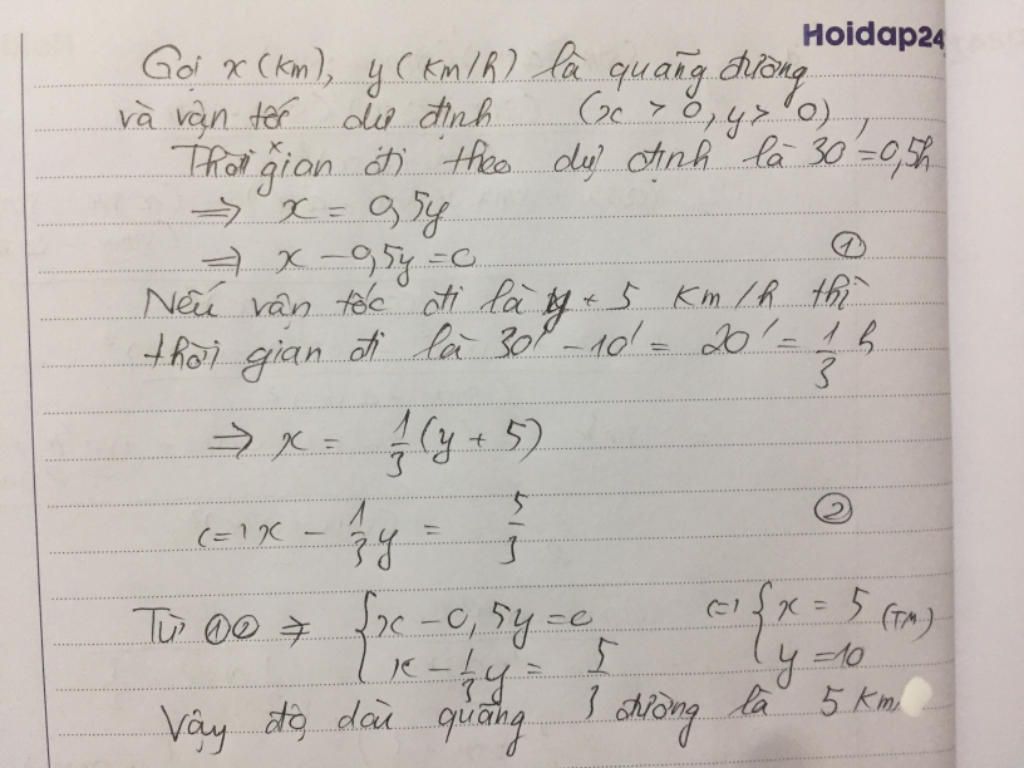 Hoidap24
Gọi x (km), y (km/h) là quãng đường
và vận tốc dự định (x > 0, y > 0),
Thời gian đi theo dự định là 30' = 0,5h
⇒ x = 0,5y
⇒ x - 0,5y = 0 ①
Nếu vận tốc đi là y + 5 km/h thì
thời gian đi là 30' - 10' = 20' = 1/3 h
⇒ x = 1/3 (y + 5)
<=> x - 1/3 y = 5/3 ②
Từ ①② ⇒ { x - 0,5y = 0 <=> { x = 5 (TM)
x - 1/3 y = 5/3 y = 10
Vậy độ dài quãng đường là 5 km